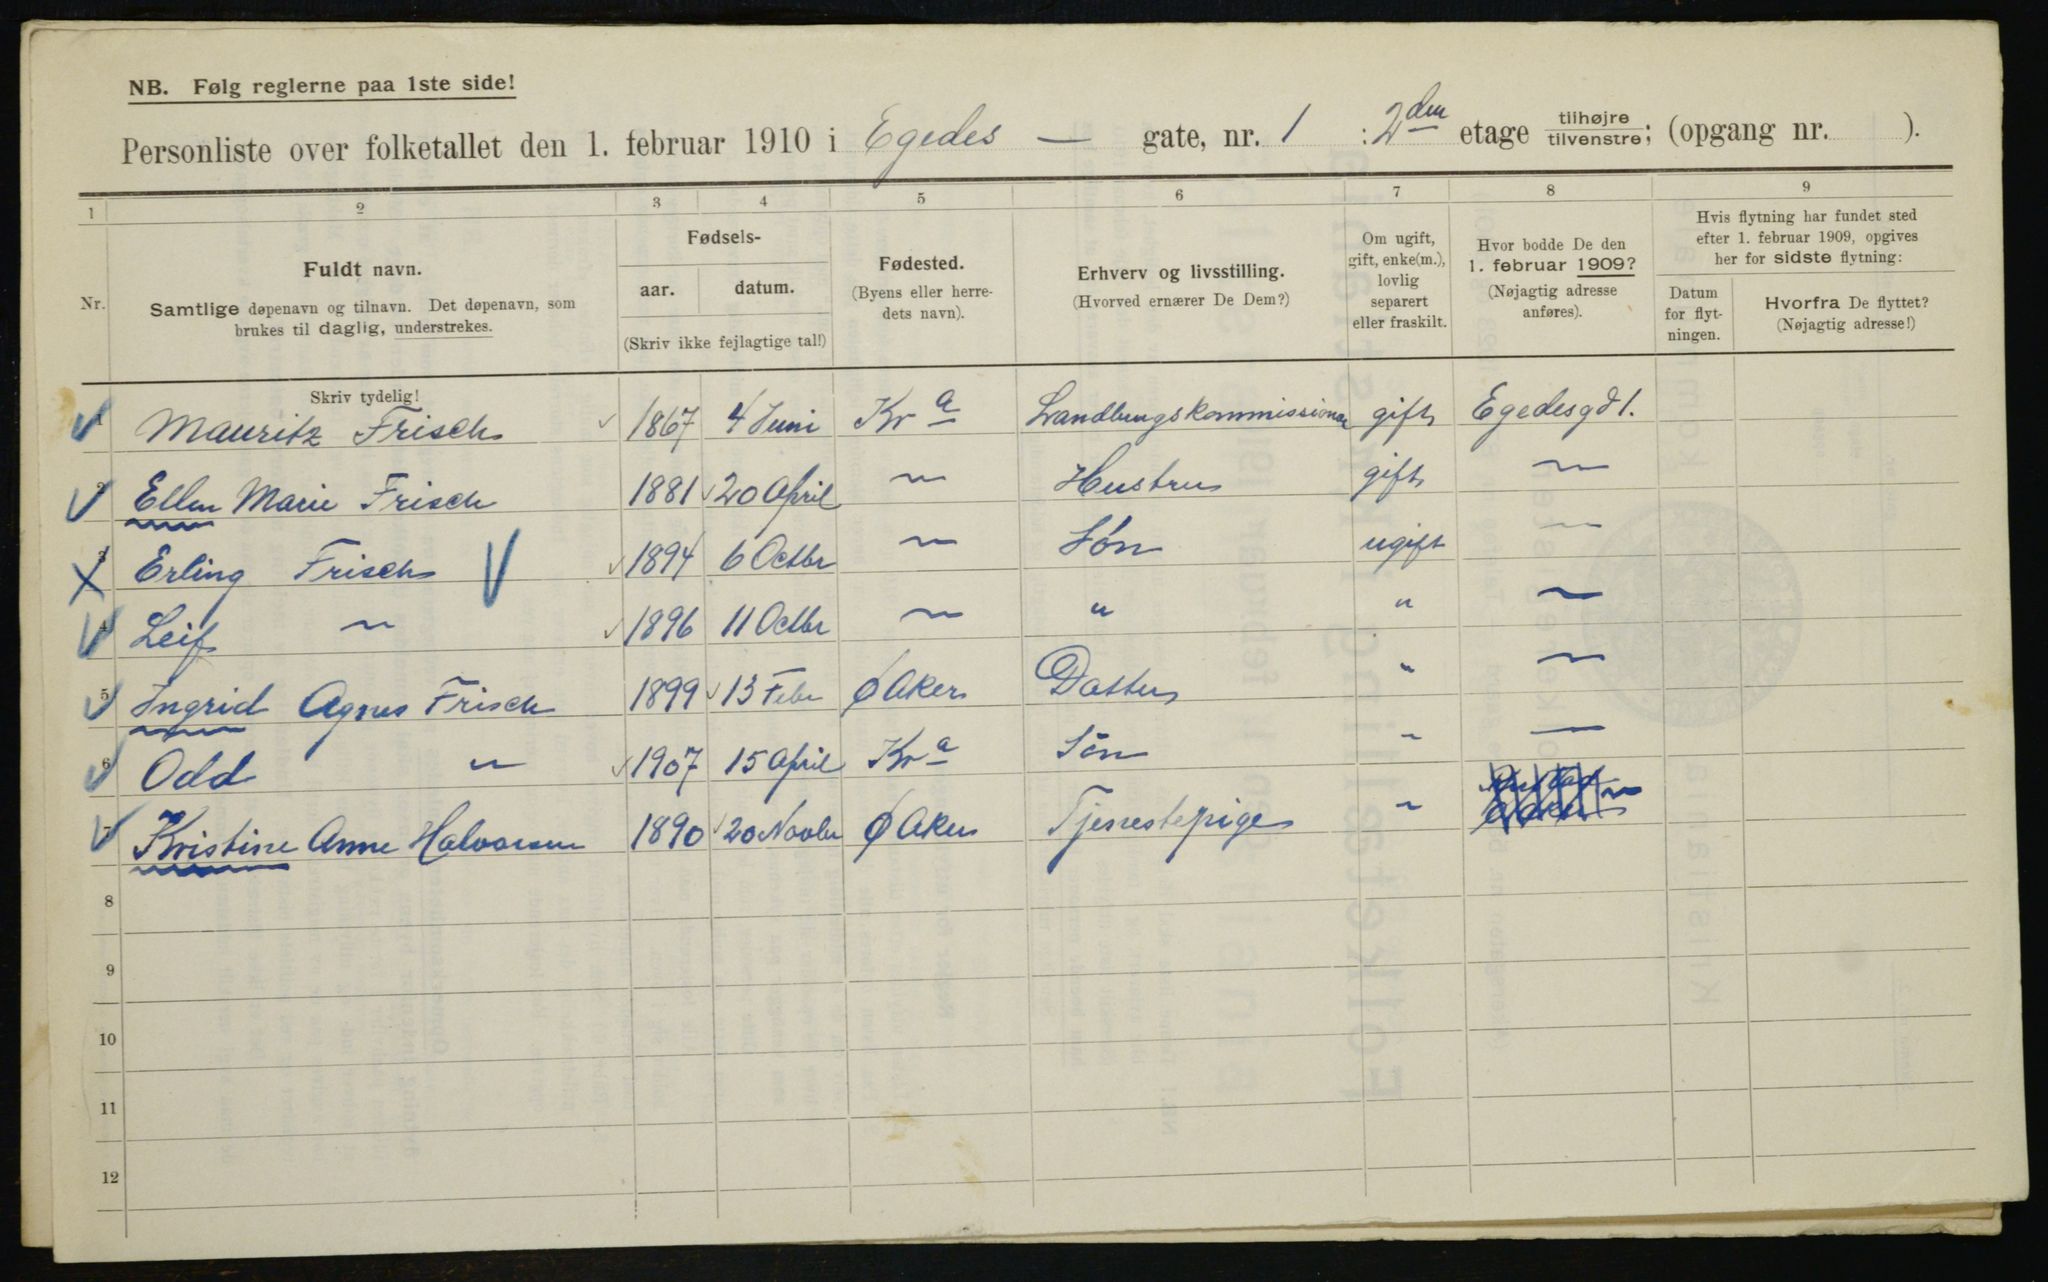 NB. Følg reglerne paa 1ste side!
Personliste over folketallet den 1. februar 1910 i Egedes — gate, nr. 1 : 2den etage tilhøjre/tilvenstre; (opgang nr. ).
1 2 3 4 5 6 7 8 9
Nr.
Fuldt navn.
Samtlige døpenavn og tilnavn. Det døpenavn, som
brukes til daglig, understrekes.
Fødsels-
aar. datum.
(Skriv ikke fejlagtige tal!)
Fødested.
(Byens eller herre-
dets navn).
Erhverv og livsstilling.
(Hvorved ernærer De Dem?)
Om ugift,
gift, enke(m.),
lovlig
separert
eller fraskilt.
Hvor bodde De den
1. februar 1909?
(Nøjagtig adresse
anføres).
Hvis flytning har fundet sted
efter 1. februar 1909, opgives
her for sidste flytning:
Datum
for flyt-
ningen.
Hvorfra De flyttet?
(Nøjagtig adresse!)
Skriv tydelig!
1 Mauritz Frisch 1867 4 Juni Kra gift Egedesgd 1.
2 Ellen Marie Frisch 1881 20 April 〃 Hustru gift 〃
3 Erling Frisch 1894 6 Octbr 〃 Søn ugift 〃
4 Leif 〃 1896 11 Octbr 〃 " " 〃
5 Ingrid Agnes Frisch 1899 13 Febr Ø Aker Datter " 〃
6 Odd 〃 1907 15 April Kra Sön " 〃
7 Kristine Anne Halvorsen 1890 20 Novbr Ø Aker Tjenestepige " 〃
8
9
10
11
12